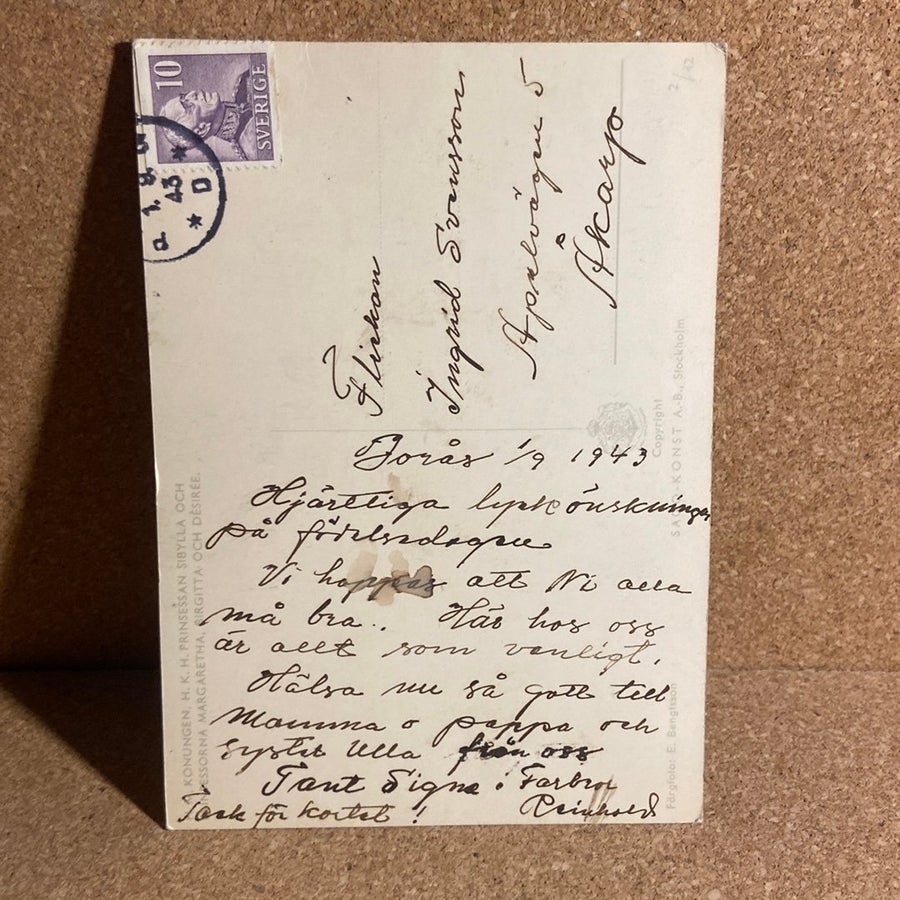 10
SVERIGE
1. 9.
43
* D *
2/12
Flickan
Ingrid Svensson
Apelvägen 5
Åkarp
Copyright
KONST A.-B., Stockholm
KONUNGEN, H. K. H. PRINSESSAN SIBYLLA OCH
PRINSESSORNA MARGARETHA, BIRGITTA OCH DÉSIRÉE.
Färgfoto: E. Bengtsson
Borås 1/9 1943
Hjärtliga lyckönskningar
på födelsedagen
Vi hoppas att Ni alla
må bra.. Här hos oss
är allt som vanligt.
Hälsa nu så gott till
Mamma o pappa och
syster Ulla från oss
Tant Signe o Farbror
Reinhold
Tack för kortet !